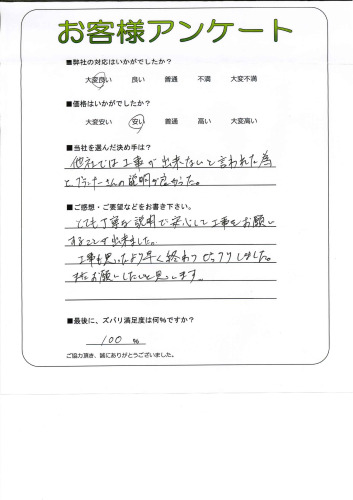 お客様アンケート
■弊社の対応はいかがでしたか？
大変良い 良い 普通 不満 大変不満
■価格はいかがでしたか？
大変安い 安い 普通 高い 大変高い
■当社を選んだ決め手は？
他社では工事が出来ないと言われた為
とプランナーさんの説明が良かった。
■ご感想・ご要望などをお書き下さい。
とても丁寧な説明で安心して工事をお願い
することが出来ました。
工事も思ったより早く終わりびっくりしました。
またお願いしたいと思います。
■最後に、ズバリ満足度は何%ですか？
100 %
ご協力頂き、誠にありがとうございました。